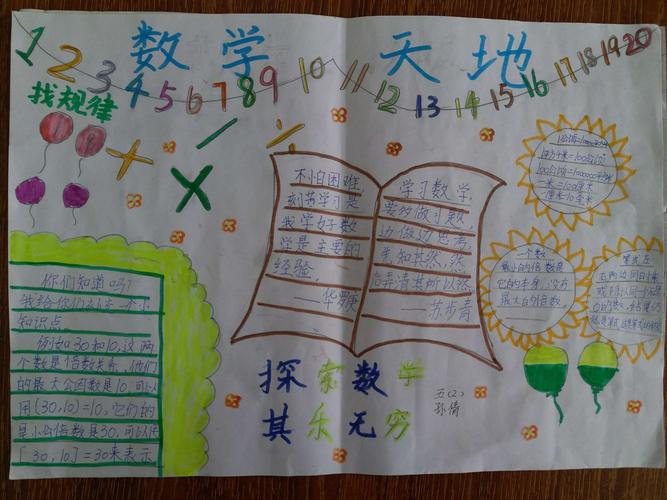 数学 天地
1 2 3 4 5 6 7 8 9 10 11 12 13 14 15 16 17 18 19 20
找规律
+ − × ÷
不怕困难,
刻苦学习是
我学好数
学是主要的
经验。
——华罗庚
学习数学,
要多做习题,
边做边思考,
先知其然,然
后弄清其所以然
——苏步青
1公顷=10000平方米
1平方千米=100公顷
100公顷=1000000平方米
一米=100厘米
一个数
最小的倍数是
它的本身,没有
最大的倍数。
等式左
右两边同时乘
或除以同一个不是
0的数,
你们知道吗?
我给你们
知识点
例如30和10,这两
个数是倍数关系,他们
的最大公因数是10,可以
用(30,10)=10,它们的
是小公倍数是30,可以用
[30,10]=30来表示
探索数学
其乐无穷
五(2)
孙倩